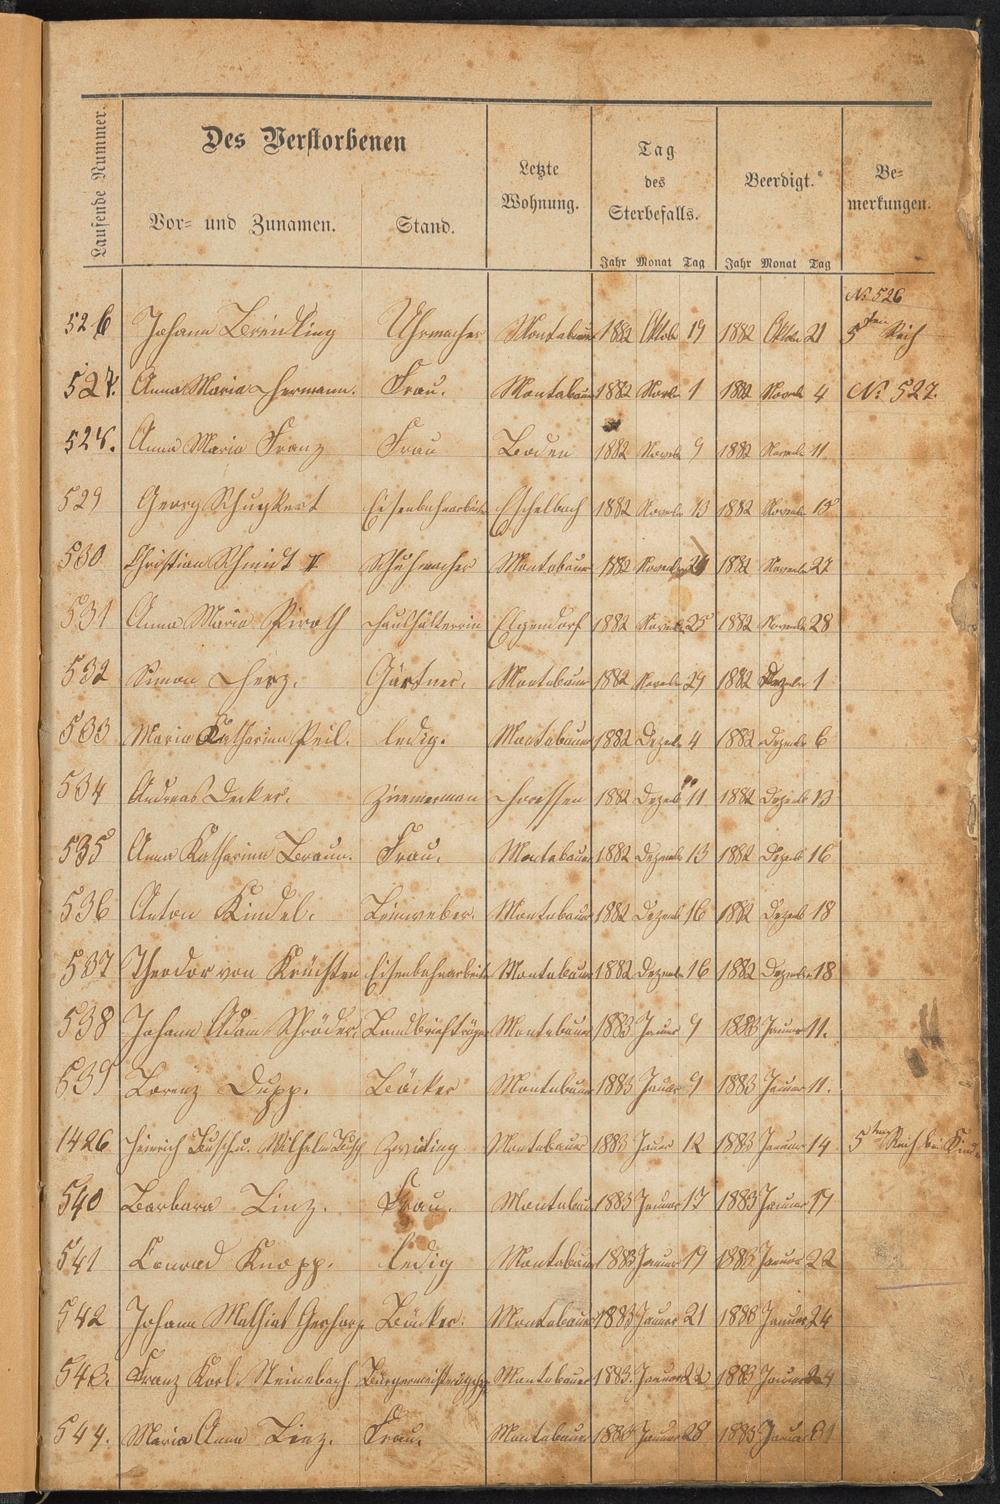 Laufende Nummer.
Des Verstorbenen
Vor- und Zunamen. Stand.
Letzte Wohnung.
Tag des Sterbefalls.
Beerdigt.
Be-
merkungen.
Jahr Monat Tag Jahr Monat Tag
No 526
526 Johann Brendling Uhrmacher Montabaur 1882 Oktob 19 1882 Oktob 21 5ten Reih
527. Anna Maria Hermann. Frau. Montabaur 1882 Novb 1 1882 Novb 4 No 527.
528. Anna Maria Franz Frau Boden 1882 Novb 9 1882 Novemb 11
529 Georg Eisenbahnarbeiter Eschelbach 1882 Novemb 13 1882 Novemb 15
530 Christian Schmidt II Schuhmacher Montabaur 1882 Novemb 24 1882 Novemb 27
531 Anna Maria Piroth Haushälterin Elgendorf 1882 Novemb 25 1882 Novemb 28
532 Simon Herz. Gärtner. Montabaur 1882 Novemb 29 1882 Dezemb 1
533 Maria Katharina Peil. ledig. Montabaur 1882 Dezeb 4 1882 Dezemb 6
534 Andreas Decker. Zimmerman Horessen 1882 Dezeb 11 1882 Dezemb 13
535 Anna Katharina Braun. Frau. Montabaur 1882 Dezemb 13 1882 Dezeb 16
536 Anton Kindel. Leinweber. Montabaur 1882 Dezemb 16 1882 Dezeb 18
537 Theodor von Krüchten Eisenbahnarbeit Montabaur 1882 Dezemb 16 1882 Dezemb 18
538 Johann Adam Schröder Landbriefträger Montabaur 1883 Januar 9 1883 Januar 11.
539 Lorenz Dupp. Bäcker Montabaur 1883 Januar 9 1883 Januar 11.
1426 Heinrich u. Wilhelm Zwilling Montabaur 1883 Januar 12 1883 Januar 14 5ten Reih bei
540 Barbara Linz. Frau. Montabaur 1883 Januar 17 1883 Januar 17
541 Conrad Knopp. ledig Montabaur 1883 Januar 19 1883 Januar 22
542 Johann Mathias Montabaur 1883 Januar 21 1883 Januar 24
543. Franz Karl Steinebach. Montabaur 1883 Januar 22 1883 Januar 24
544. Maria Anna Linz. Frau. Montabaur 1883 Januar 28 1883 Januar 31